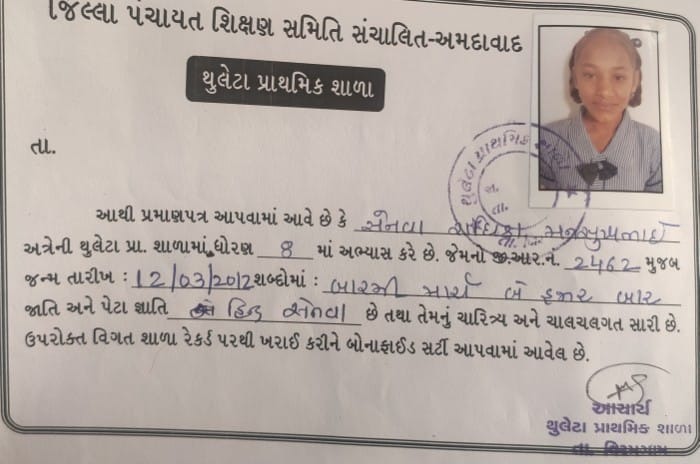 જિલ્લા પંચાયત શિક્ષણ સમિતિ સંચાલિત-અમદાવાદ
થુલેટા પ્રાથમિક શાળા
તા.
આથી પ્રમાણપત્ર આપવામાં આવે છે કે સેનવા રાધિકા મનસુખભાઈ
અત્રેની થુલેટા પ્રા. શાળામાં ધોરણ 8 માં અભ્યાસ કરે છે. જેમનો જી.આર.નં. 2462 મુજબ
જન્મ તારીખ : 12/03/2012 શબ્દોમાં : બારમી માર્ચ બે હજાર બાર
જાતિ અને પેટા જ્ઞાતિ હિન્દુ સેનવા છે તથા તેમનું ચારિત્ર્ય અને ચાલચલગત સારી છે.
ઉપરોક્ત વિગત શાળા રેકર્ડ પરથી ખરાઈ કરીને બોનાફાઈડ સર્ટી આપવામાં આવેલ છે.
આચાર્ય
થુલેટા પ્રાથમિક શાળા
તા. વિરમગામ